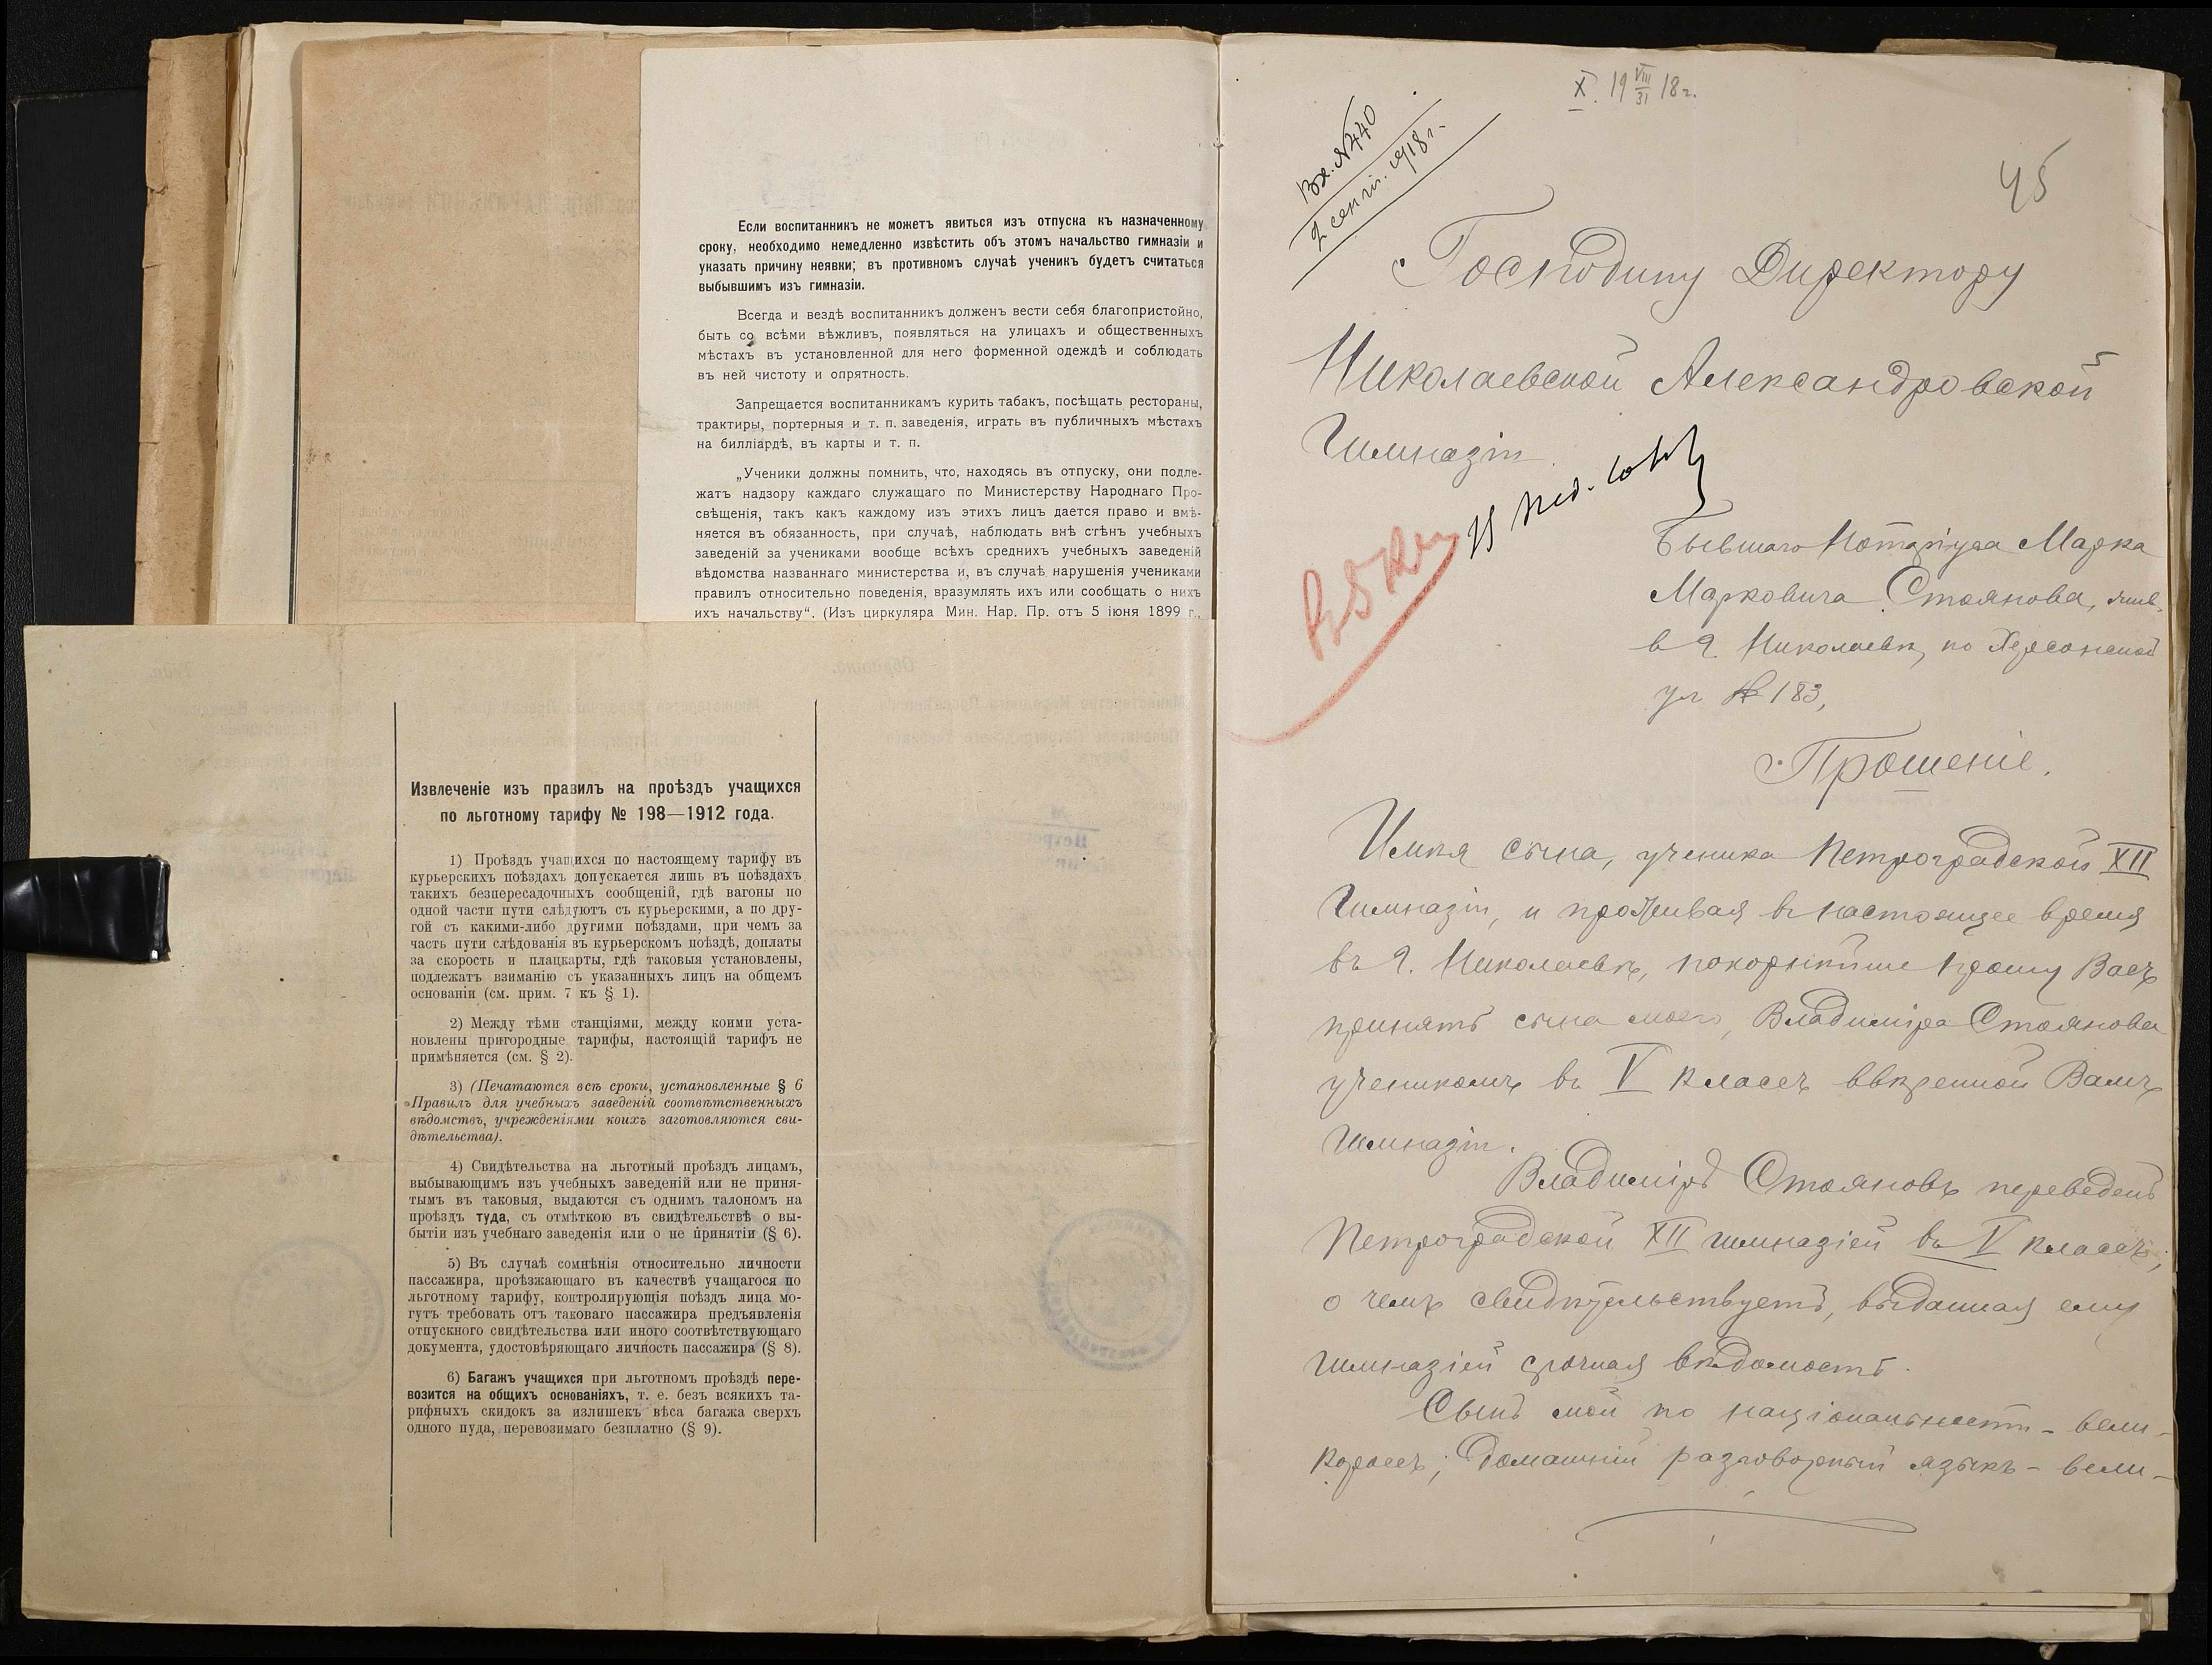 Если воспитанникъ не можетъ явиться изъ отпуска къ назначенному
сроку, необходимо немедленно извѣстить объ этомъ начальство гимназіи и
указать причину неявки; въ противномъ случаѣ ученикъ будетъ считаться
выбывшимъ изъ гимназіи.
Всегда и вездѣ воспитанникъ долженъ вести себя благопристойно,
быть со всѣми вѣжливъ, появляться на улицахъ и общественныхъ
мѣстахъ въ установленной для него форменной одеждѣ и соблюдать
въ ней чистоту и опрятность.
Запрещается воспитанникамъ курить табакъ, посѣщать рестораны,
трактиры, портерныя и т. п. заведенія, играть въ публичныхъ мѣстахъ
на билліардѣ, въ карты и т. п.
„Ученики должны помнить, что, находясь въ отпуску, они подле-
жатъ надзору каждаго служащаго по Министерству Народнаго Про-
свѣщенія, такъ какъ каждому изъ этихъ лицъ дается право и вмѣ-
няется въ обязанность, при случаѣ, наблюдать внѣ стѣнъ учебныхъ
заведеній за учениками вообще всѣхъ среднихъ учебныхъ заведеній
вѣдомства названнаго министерства и, въ случаѣ нарушенія учениками
правилъ относительно поведенія, вразумлять ихъ или сообщать о нихъ
ихъ начальству“. (Изъ циркуляра Мин. Нар. Пр. отъ 5 іюня 1899 г.,
Извлеченіе изъ правилъ на проѣздъ учащихся
по льготному тарифу № 198—1912 года.
1) Проѣздъ учащихся по настоящему тарифу въ
курьерскихъ поѣздахъ допускается лишь въ поѣздахъ
такихъ безпересадочныхъ сообщеній, гдѣ вагоны по
одной части пути слѣдуютъ съ курьерскими, а по дру-
гой съ какими-либо другими поѣздами, при чемъ за
часть пути слѣдованія въ курьерскомъ поѣздѣ, доплаты
за скорость и плацкарты, гдѣ таковыя установлены,
подлежатъ взиманію съ указанныхъ лицъ на общемъ
основаніи (см. прим. 7 къ § 1).
2) Между тѣми станціями, между коими уста-
новлены пригородные тарифы, настоящій тарифъ не
примѣняется (см. § 2).
3) (Печатаются всѣ сроки, установленные § 6
Правилъ для учебныхъ заведеній соотвѣтственныхъ
вѣдомствъ, учрежденіями коихъ заготовляются сви-
дѣтельства).
4) Свидѣтельства на льготный проѣздъ лицамъ,
выбывающимъ изъ учебныхъ заведеній или не приня-
тымъ въ таковыя, выдаются съ однимъ талономъ на
проѣздъ туда, съ отмѣткою въ свидѣтельствѣ о вы-
бытіи изъ учебнаго заведенія или о не принятіи (§ 6).
5) Въ случаѣ сомнѣнія относительно личности
пассажира, проѣзжающаго въ качествѣ учащагося по
льготному тарифу, контролирующія поѣздъ лица мо-
гутъ требовать отъ таковаго пассажира предъявленія
отпускного свидѣтельства или иного соотвѣтствующаго
документа, удостовѣряющаго личность пассажира (§ 8).
6) Багажъ учащихся при льготномъ проѣздѣ пере-
возится на общихъ основаніяхъ, т. е. безъ всякихъ та-
рифныхъ скидокъ за излишекъ вѣса багажа сверхъ
одного пуда, перевозимаго безплатно (§ 9).
X. 19 VIII/31 18 г.
Вх. № 440
2 сент. 1918 г.
45
Господину Директору
Николаевской Александровской
Гимназіи
Бывшаго Нотаріуса Марка
Марковича Стоянова, жив.
в г. Николаевѣ, по Херсонской
ул № 183,
Прошеніе.
Имѣя сына, ученика Петроградской XII
Гимназіи, и проживая въ настоящее время
въ г. Николаевѣ, покорнѣйше прошу Васъ
принять сына моего, Владиміра Стоянова
ученикомъ въ V классъ ввѣренной Вамъ
гимназіи.
Владиміръ Стояновъ переведенъ
Петроградской XII гимназіей въ V классъ,
о чемъ свидѣтельствуетъ, выданная ему
гимназіей срочная вѣдомость.
Сынъ мой по національности - вели-
короссъ; домашній разговорный языкъ - вели-